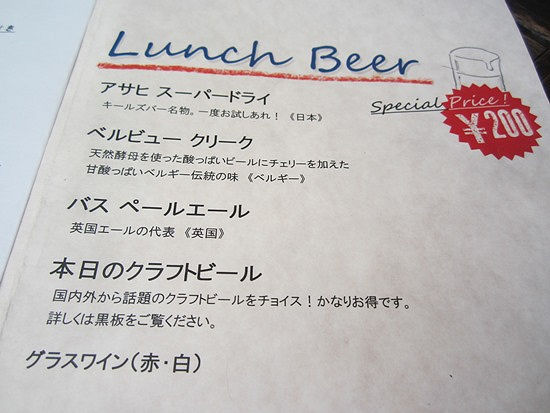 Lunch Beer
アサヒ スーパードライ
キールズバー名物。一度お試しあれ！《日本》
Special Price!
¥200
ベルビュー クリーク
天然酵母を使った酸っぱいビールにチェリーを加えた
甘酸っぱいベルギー伝統の味《ベルギー》
バス ペールエール
英国エールの代表《英国》
本日のクラフトビール
国内外から話題のクラフトビールをチョイス！かなりお得です。
詳しくは黒板をご覧ください。
グラスワイン（赤・白）